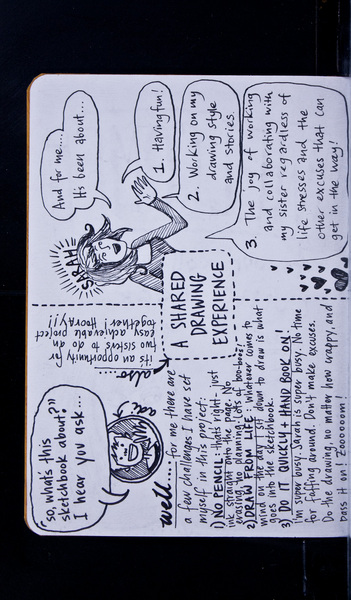 "So, what's this
sketchbook about?"
I hear you ask...
me!
well.... for me there are
a few challenges I have set
myself in this project:
1) NO PENCIL: that's right - just
ink straight onto the page. No
erasing meaning lots of
2) DRAW FROM LIFE: whatever comes to
mind on the day I sit down to draw is what
goes into the sketchbook.
3) DO IT QUICKLY + HAND BOOK ON!
I'm super busy. Sarah is super busy. No time
for faffing around. Don't make excuses.
Do the drawing, no matter how crappy, and
pass it on! Zoooooom!
also....
it's an opportunity for
two sisters to do an
easy achievable project
together! Hooray!!
A SHARED
DRAWING
EXPERIENCE
SARAH
And for me...
It's been about....
1. Having fun!
2. Working on my
drawing style
and stories.
3. The joy of working
and collaborating with
my sister regardless of
life stresses and the
other excuses that can
get in the way!